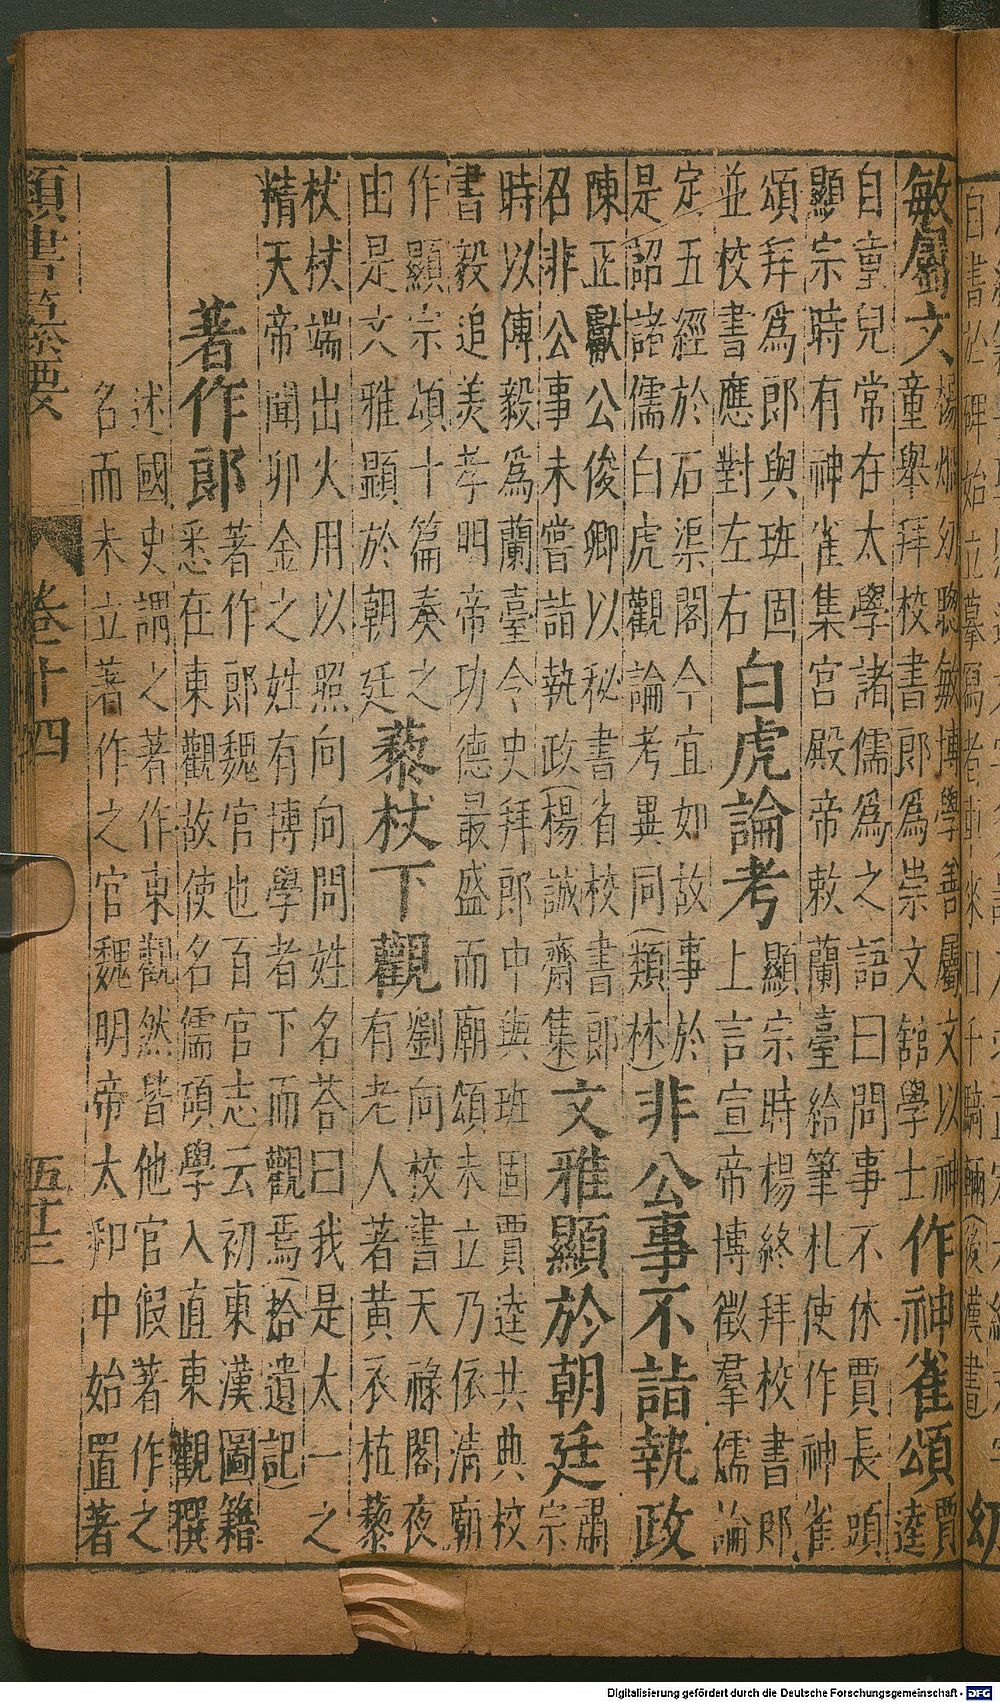 自書於碑始立摹寫者
後漢書
幼
敏屬文
楊炯幼聰敏博學善屬文以神
童舉拜校書郎為崇文館學士
作神雀頌
賈
逵
自童兒常在太學諸儒為之語曰問事不休賈長頭
顯宗時有神雀集宮殿帝敕蘭臺給筆札使作神雀
頌拜為郎與班固
並校書應對左右
白虎論考
顯宗時楊終拜校書郎
上言宣帝博徵羣儒論
定五經於石渠閣今宜如故事於
是詔諸儒白虎觀論考異同(類林)
非公事不詣執政
陳正獻公俊卿以秘書省校書郎
召非公事未嘗詣執政(楊誠齋集)
文雅顯於朝廷
肅
宗
時以傅毅為蘭臺令史拜郎中與班固賈逵共典校
書毅追美孝明帝功德最盛而廟頌未立乃依清廟
作顯宗頌十篇奏之
由是文雅顯於朝廷
藜杖下觀
劉向校書天祿閣夜
有老人著黃衣植藜
杖杖端出火用以照向向問姓名荅曰我是太一之
精天帝聞卯金之姓有博學者下而觀焉(拾遺記)
著作郎
著作郎魏官也百官志云初東漢圖籍
悉在東觀故使名儒碩學入直東觀撰
述國史謂之著作東觀然皆他官假著作之
名而未立著作之官魏明帝太和中始置著
類書纂要
卷十四
五十三
Digitalisierung gefördert durch die Deutsche Forschungsgemeinschaft - DFG